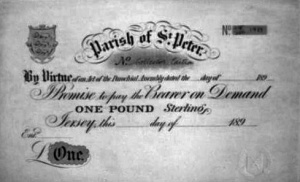 No
Parish of St. Peter.
No
By Virtue of an Act of the Parochial Assembly dated the day of 189
I Promise to pay the Bearer on Demand
ONE POUND Sterling,
Jersey, this day of 189
Entd.
£ One.